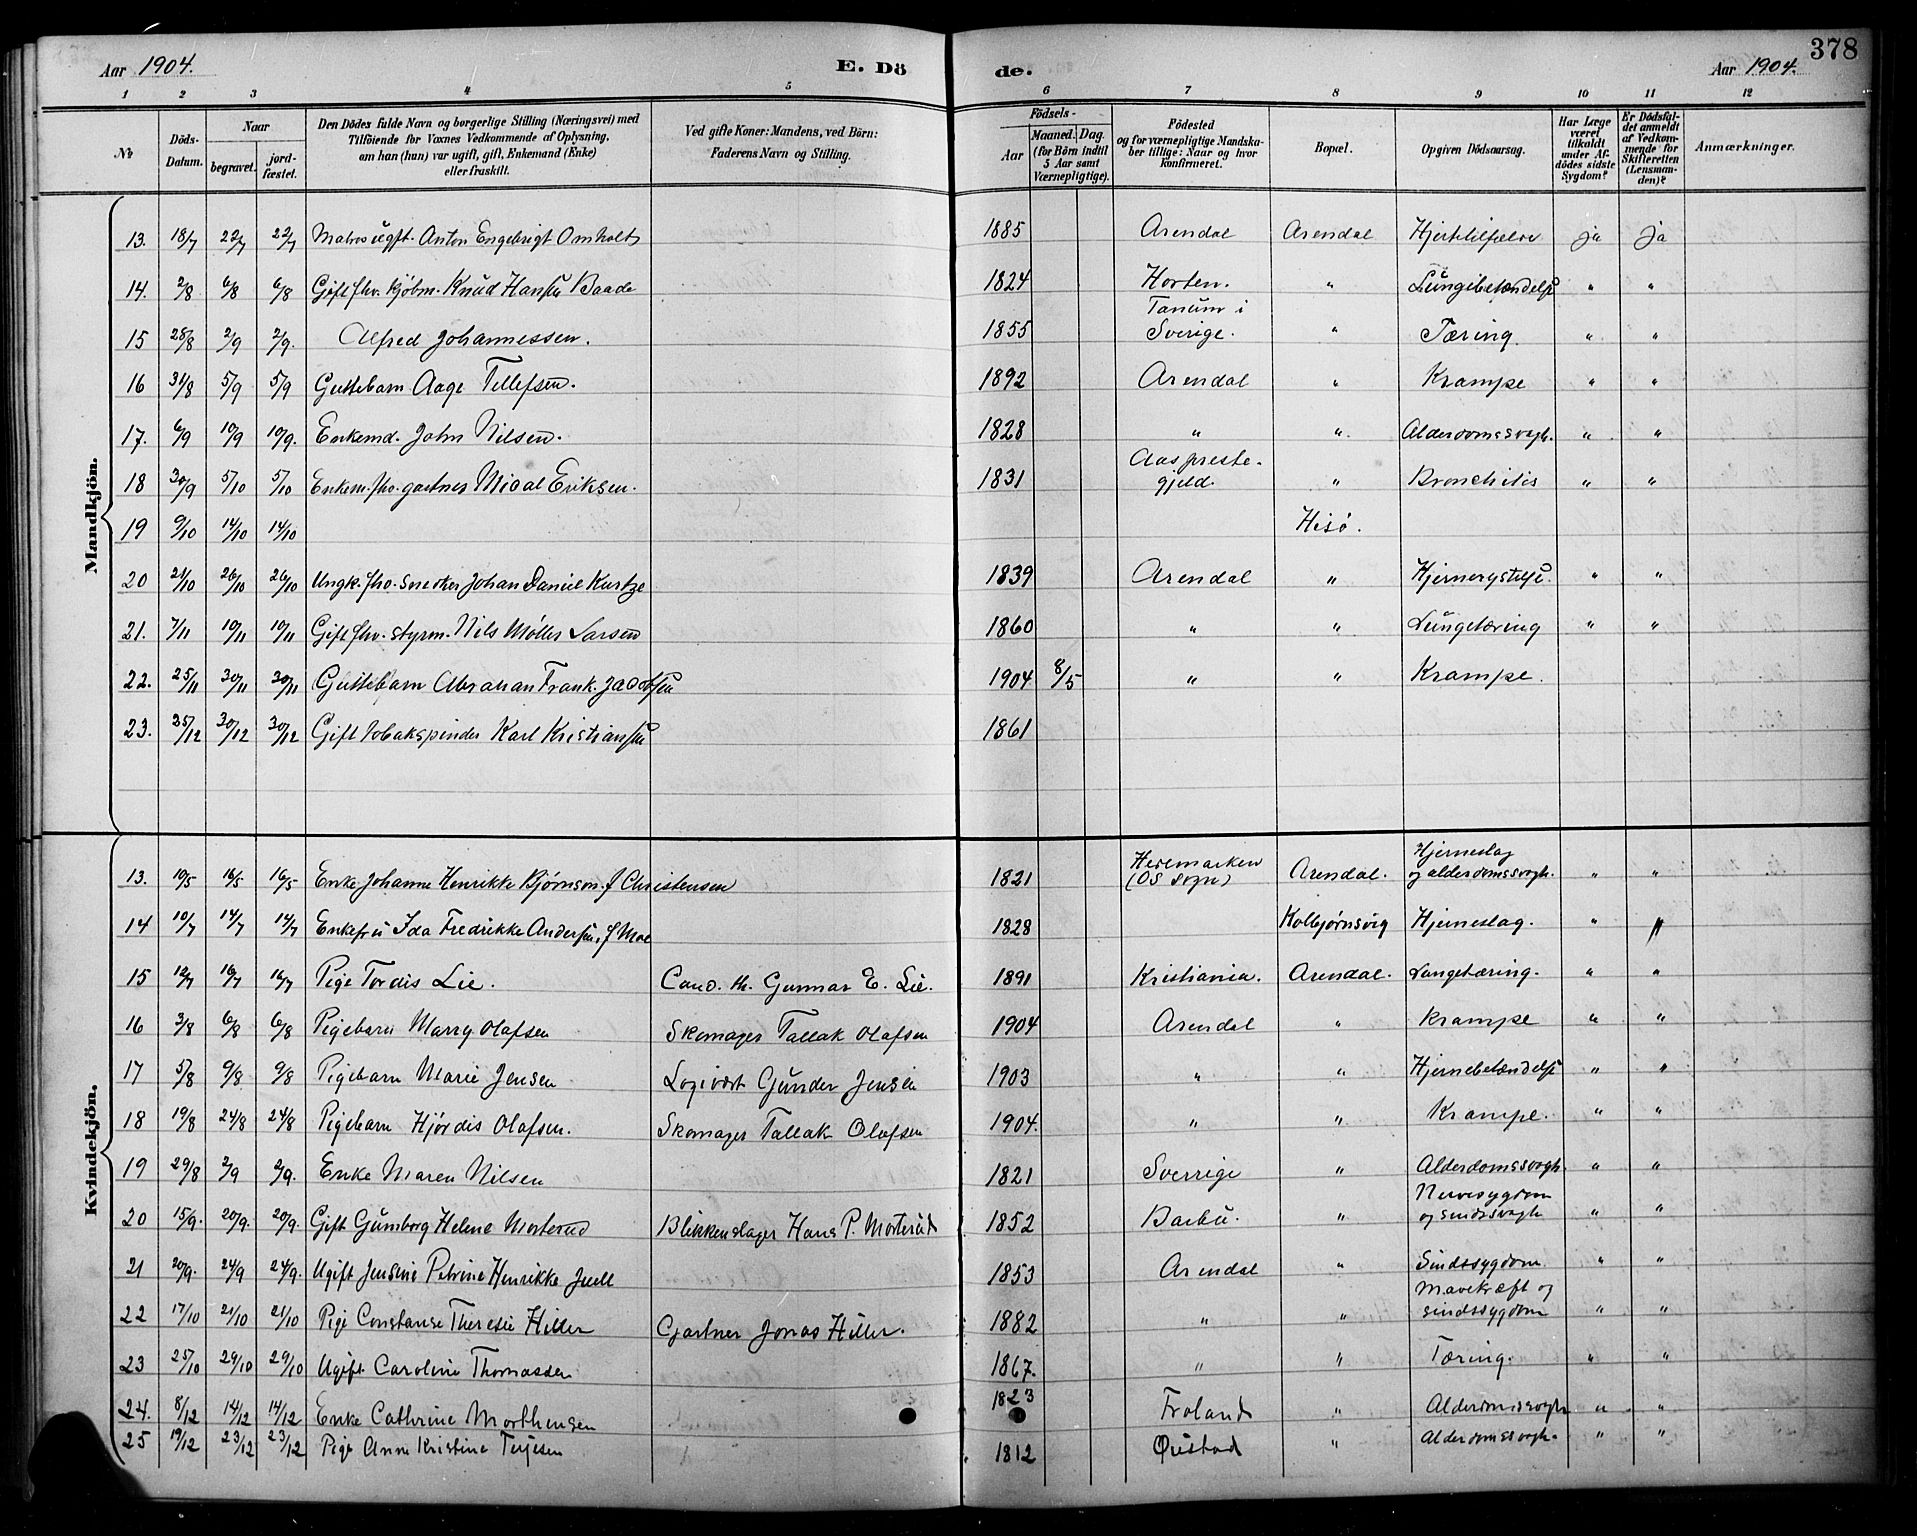 378
Aar 1904. E. Dö de. Aar 1904.
1 2 3 4 5 6 7 8 9 10 11 12
No Döds-Datum. Naar begravet. jord-fæstet. Den Dödes fulde Navn og borgerlige Stilling (Næringsvei) med Tilföiende for Voxnes Vedkommende af Oplysning, om han (hun) var ugift, gift, Enkemand (Enke) eller fraskilt. Ved gifte Koner: Mandens, ved Börn: Faderens Navn og Stilling. Födsels- Aar Maaned. Dag. (for Börn indtil 5 Aar samt Værnepligtige). Födested og for værnepligtige Mandskaber tillige: Naar og hvor konfirmeret. Bopæl. Opgiven Dödsaarsag. Har Læge været tilkaldt under Afdödes sidste Sygdom? Er Dödsfaldet anmeldt af Vedkommende for Skifteretten (Lensmanden)? Anmærkninger.
Mandkjön.
13. 18/7 22/7 22/7 Matros ugft. Anton Engebrigt Omholt 1885 Arendal Arendal Hjertelilfælde ja ja
14. 2/8 6/8 6/8 Gift fhv. kjøbm. Knud Hansen Baade 1824 Horten. " Lungebetændelse " "
15 28/8 2/9 2/9. Alfred Johannessen. 1855 Tanum i Sverige. " Tæring. " "
16 31/8 5/9 5/9 Guttebarn Aage Tellefsen. 1892 Arendal " Krampe " "
17. 6/9 10/9 10/9. Enkemd. John Nilsen. 1828 " " Alderdomssvagh. " "
18 30/9 5/10 5/10 Enkem. fhv. gartner Micael Eriksen. 1831 Aas prestegjeld. " Bronchitis " "
19 9/10 14/10 14/10 Hisö.
20 21/10 26/10 26/10 Ungk. fhv. snedker Johan Daniel Kurtze 1839 Arendal " Hjernerystelse. " "
21. 7/11 10/11 10/11 Gift fhv. styrm. Nils Møller Larsen 1860 " " Lungetæring " "
22. 25/11 30/11 30/11 Guttebarn Abraham Frank Jacobsen 1904 8/5 " " Krampe.
23. 25/12 30/12 30/12 Gift tobakspinder Karl Kristiansen 1861
Kvindekjön.
13. 10/5 16/5 16/5 Enke Johanne Henrikke Bjørnson f Christensen 1821 Hesemarken (OS sogn) Arendal. Hjerneslag og alderdomssvagh. " "
14 10/7 14/7 14/7 Enkefru Ida Fredrikke Andersen, f Moe 1828 Kolbjørnsvig Hjerneslag. " "
15 12/7 16/7 16/7 Pige Tordis Lie. Cand. th. Gunnar E. Lie. 1891 Kristiania. Arendal. Lungetæring. " "
16 3/8 6/8 6/8 Pigebarn Marry Olafsen Skomager Tallak Olafsen 1904 Arendal " Krampe " "
17 5/8 9/8 9/8 Pigebarn Marie Jensen Logivært Gunder Jensen 1903 " " Hjernebetændelse " "
18 19/8 24/8 24/8 Pigebarn Hjördis Olafsen. Skomager Tallak Olafsen 1904. " " Krampe. " "
19 29/8 2/9 2/9. Enke Maren Nilsen 1821 Sverrige " Alderdomssvagh. " "
20 15/9. 20/9. 20/9. Gift Gunborg Helene Mosterud Blikkenslager Hans P. Mosterud 1852 Barbu. " Nervesygdom og sindssvagh " "
21 20/9. 24/9 24/9. Ugift Jensine Petrine Henrikke Juell 1853 Arendal " Sindssygdom. " "
22 17/10 21/10 21/10 Pige Constanse Theresie Hiller Gjartner Jonas Hiller. 1882 " " Mavekræft og sindssygdom " "
23 25/10 29/10 29/10 Ugift Caroline Thomassen 1867. " " Tæring. " "
24. 8/12 14/12 14/12 Enke Cathrine Morthensen 1823 Froland " Alderdomssvagh " "
25 19/12 23/12 23/12 Pige Anne Kristine Terjesen 1812 Øiestad " Alderdomssvagh. " "